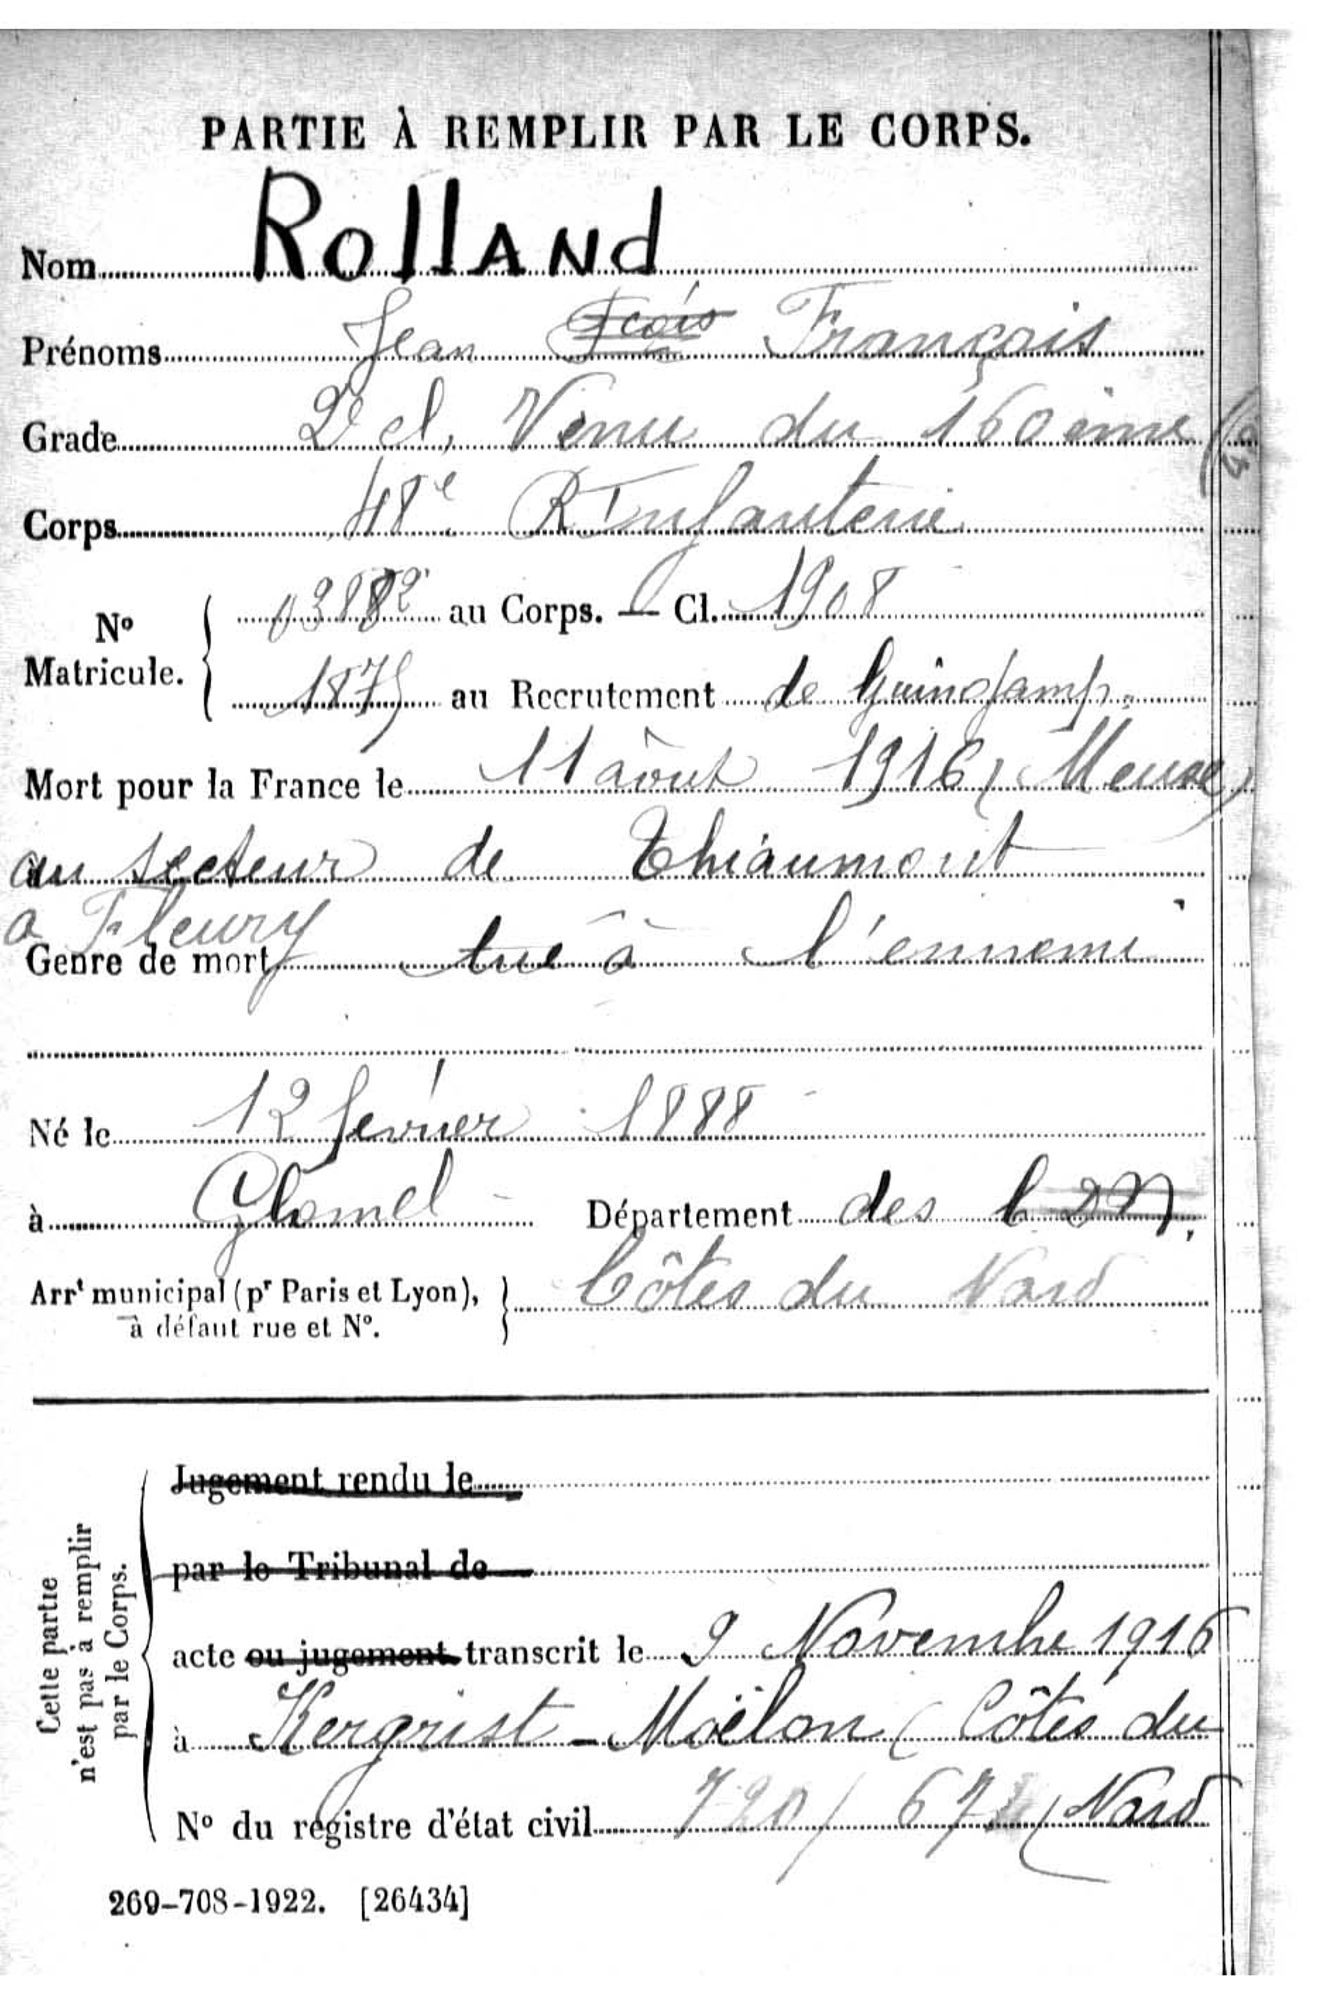 PARTIE À REMPLIR PAR LE CORPS.
Nom ROllANd
Prénoms Jean Fcois François
Grade 2e cl, Venu du 160ème
Corps 48e R Infanterie
No Matricule. 03882 au Corps. — Cl. 1908
1875 au Recrutement de Guingamp.
Mort pour la France le 11 août 1916 (Meuse)
au secteur de Thiaumont
a Fleury
Genre de mort tué à l'ennemi
Né le 12 février 1888
à Glomel Département des C D N.
Arrt municipal (pr Paris et Lyon), à défaut rue et No. Côtes du Nord
Cette partie n'est pas à remplir par le Corps.
Jugement rendu le
par le Tribunal de
acte ou jugement transcrit le 9 Novembre 1916
à Kergrist-Moëlou (Côtes du
No du registre d'état civil 720/67 Nord
269-708-1922. [26434]